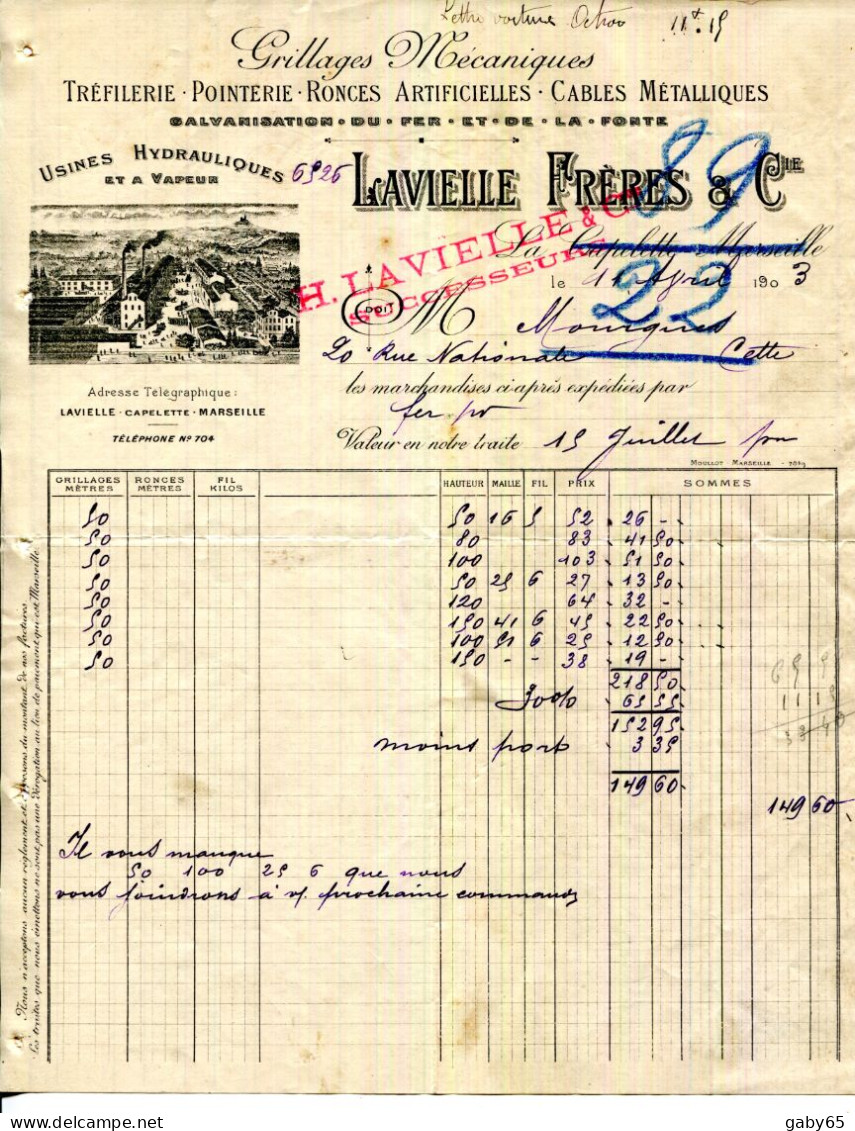 Lettre voiture Octroi 11+15
Grillages Mécaniques
TRÉFILERIE · POINTERIE · RONCES ARTIFICIELLES · CABLES MÉTALLIQUES
GALVANISATION · DU · FER · ET · DE · LA · FONTE
USINES HYDRAULIQUES
ET A VAPEUR
6526
LAVIELLE FRÈRES & CIE
89
La Capelette-Marseille
H. LAVIELLE & Cie
SUCCESSEURS
le 11 April 1903
22
DOIT
M Mourgues
20 Rue Nationale Cette
Adresse Télégraphique:
LAVIELLE · CAPELETTE · MARSEILLE
TÉLÉPHONE No 704
les marchandises ci-après expédiées par
fer pv
Valeur en notre traite 15 Juillet
MOULLOT - MARSEILLE
GRILLAGES MÈTRES RONCES MÈTRES FIL KILOS HAUTEUR MAILLE FIL PRIX SOMMES
50 50 16 5 52 26 -
50 80 83 41 50
50 100 103 51 50
50 50 25 6 27 13 50
50 120 64 32 -
50 150 41 6 45 22 50
50 100 51 6 25 12 50
50 150 - - 38 19 -
218 50
30% 65 55
152 95
moins port 3 35
149 60
149 60
11 15
Il vous manque
50 100 25 6 que nous
vous joindrons à v/ prochaine commande
Nous n'acceptons aucun règlement et disposons du montant de nos factures.
Les traites que nous émettons ne sont pas une dérogation au lieu de paiement qui est Marseille.
gaby65